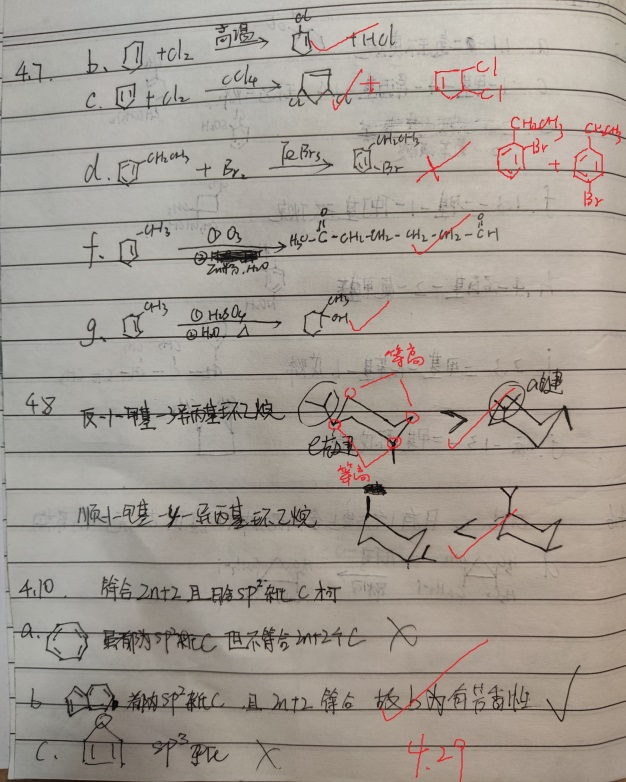 4.7. b. +Cl2 高温 Cl +HCl
c. +Cl2 CCl4 Cl Cl + Cl Cl
d. CH2CH3 + Br2 FeBr3 CH2CH3 Br CH2CH3 Br + CH2CH3 Br
f. CH3 ①O3 ② Zn粉.H2O H3C-C-CH2-CH2-CH2-CH2-CH O O
g. CH3 ①H2SO4 ②H2O, △ CH3 OH
等高
4.8 反-1-甲基-3-异丙基环己烷 e键 > a键
等高
顺-1-甲基-4-异丙基环己烷 <
4.10. 符合2n+2且 sp²杂化C
a. 虽都为sp²杂化C 但不符合2n+2个C ×
b 都为sp²杂化C 且2n+2符合 故b为有芳香性 √
c. sp³杂化 ×
4.29